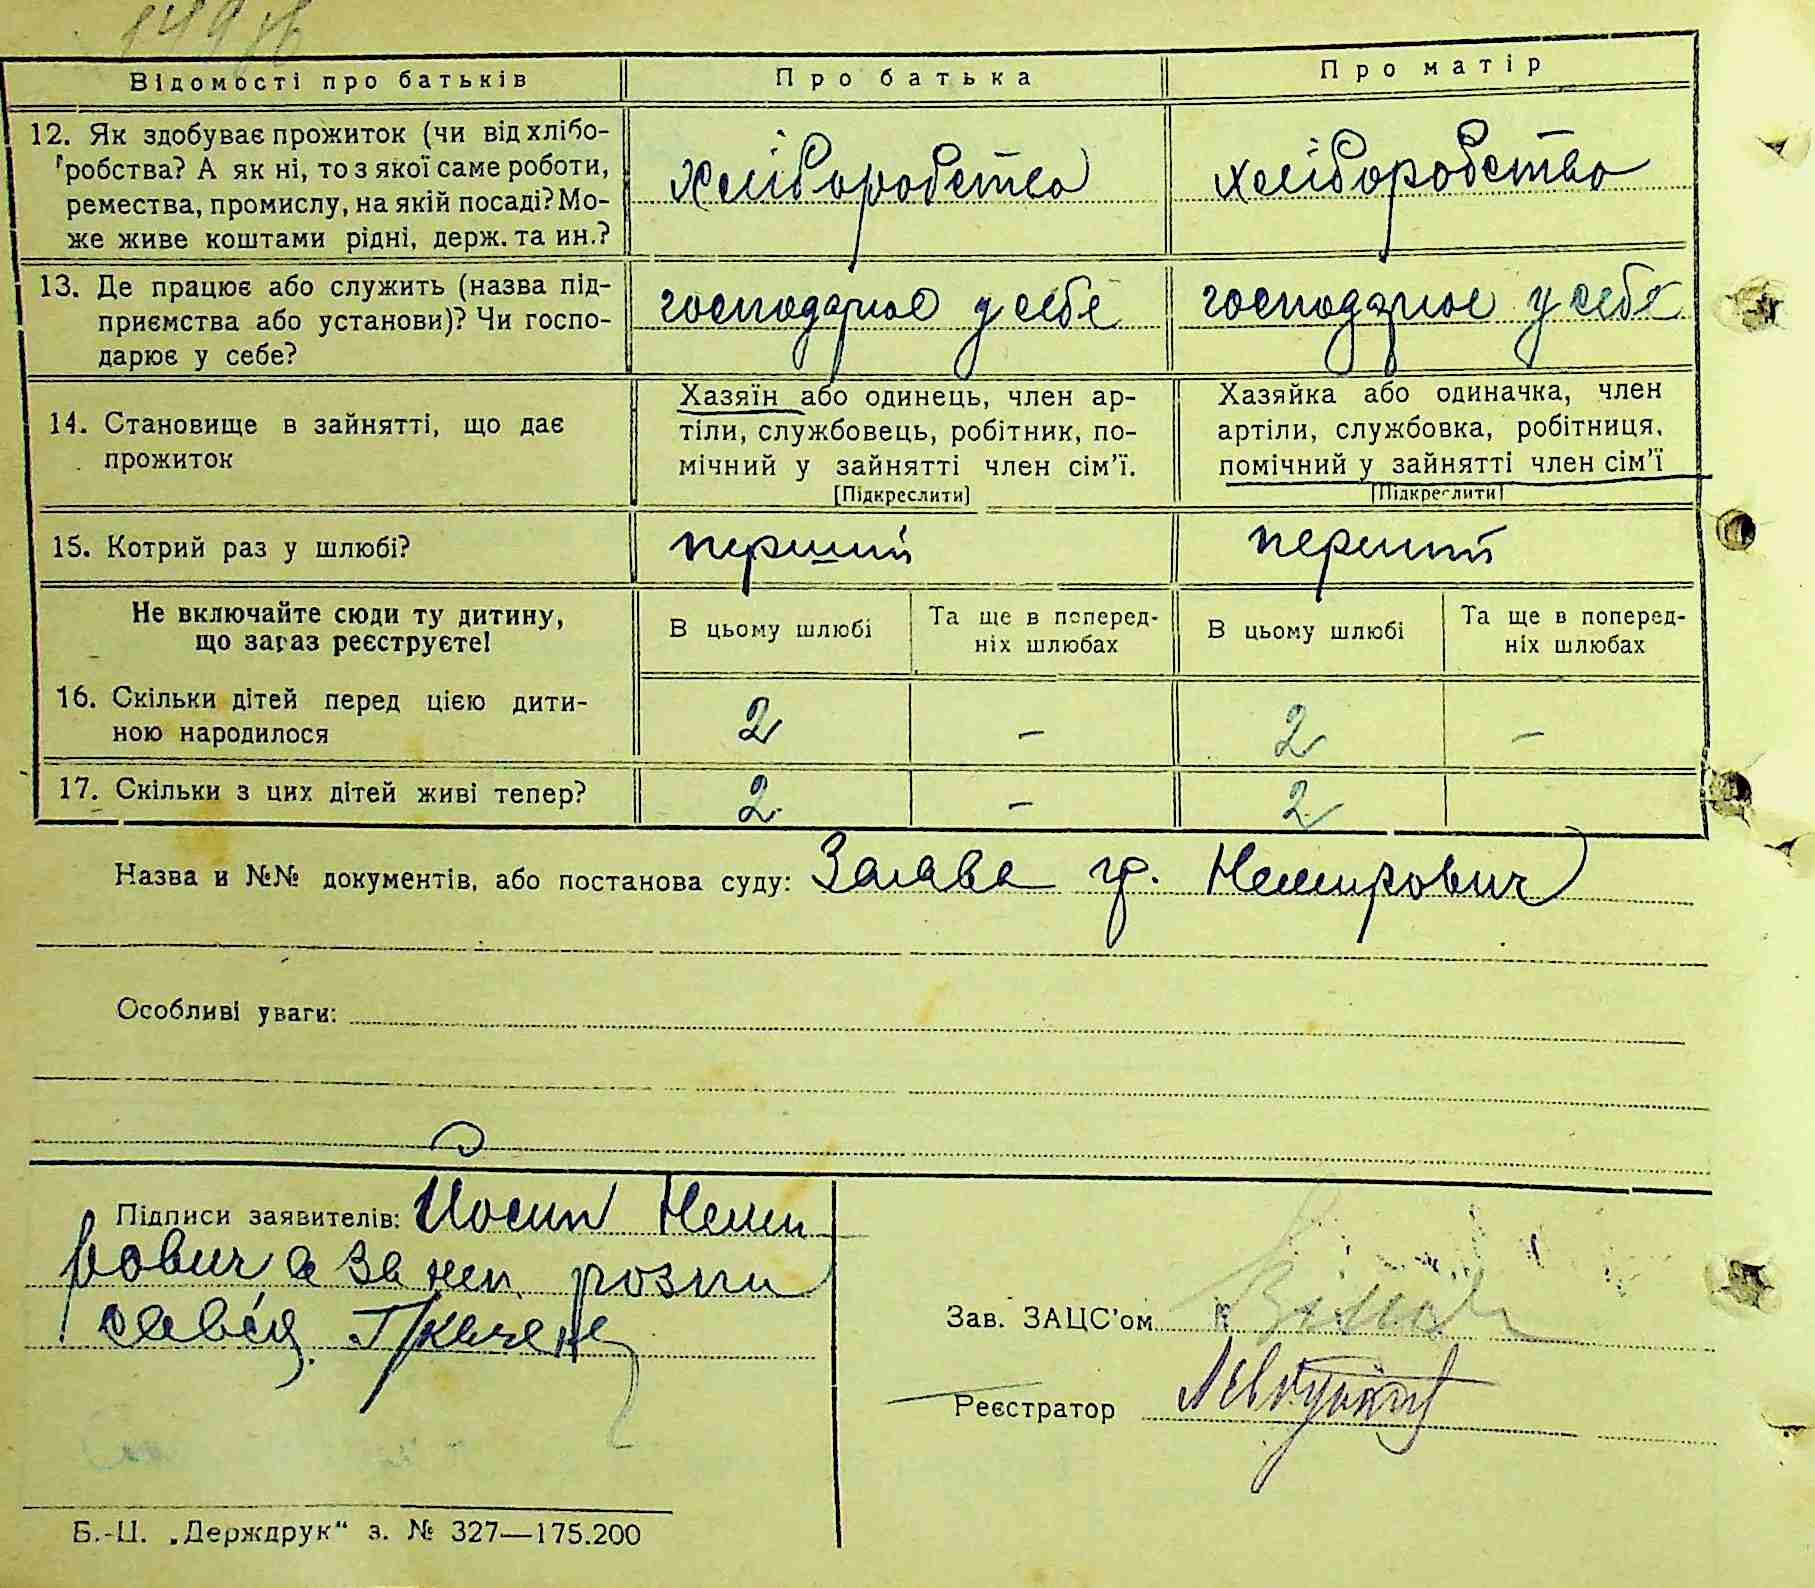 Відомості про батьків	Про батька	Про матір
12. Як здобуває прожиток (чи від хлібо-
робства? А як ні, то з якої саме роботи,
ремества, промислу, на якій посаді? Мо-
же живе коштами рідні, держ. та ин.?
хліборобство	хліборобство
13. Де працює або служить (назва під-
приємства або установи)? Чи госпо-
дарює у себе?
господарює у себе	господарює у себе
14. Становище в зайнятті, що дає
прожиток
Хазяїн або одинець, член ар-
тіли, службовець, робітник, по-
мічний у зайнятті член сім'ї.
[Підкреслити]
Хазяйка або одиначка, член
артіли, службовка, робітниця,
помічний у зайнятті член сім'ї
[Підкреслити]
15. Котрий раз у шлюбі?	перший	перший
Не включайте сюди ту дитину,
що зараз реєструєте!
В цьому шлюбі	Та ще в поперед-
ніх шлюбах
В цьому шлюбі	Та ще в поперед-
ніх шлюбах
16. Скільки дітей перед цією дити-
ною народилося
2	-	2	-
17. Скільки з цих дітей живі тепер?	2	-	2
Назва и №№ документів, або постанова суду: Заява гр. Немирович
Особливі уваги:
Підписи заявителів: Йосип Неми
рович а за неп. розпи
савсӏя
Зав. ЗАЦС'ом
Реєстратор
Б.-Ц. „Держдрук" з. № 327—175.200